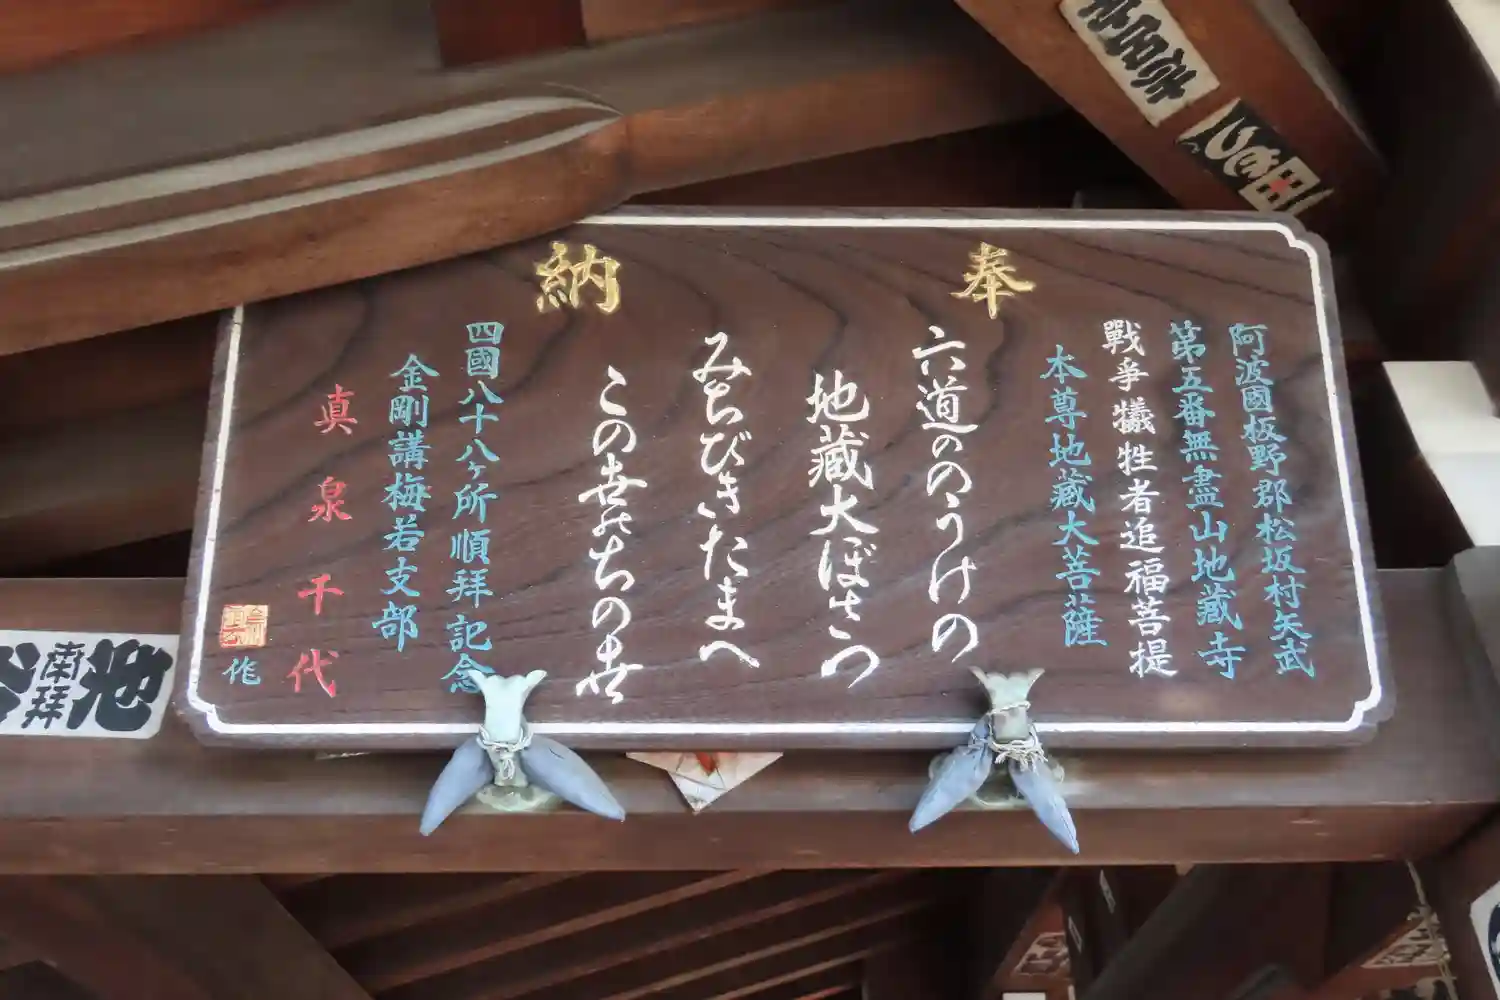 奉納
阿波國板野郡松坂村矢武
第五番無盡山地藏寺
戰爭犠牲者追福菩提
本尊地藏大菩薩
六道ののうけの
地藏大ぼさつ
みちびきたまへ
この世のちの世
四國八十八ヶ所順拜記念
金剛講梅若支部
真泉千代
作
池
南拜